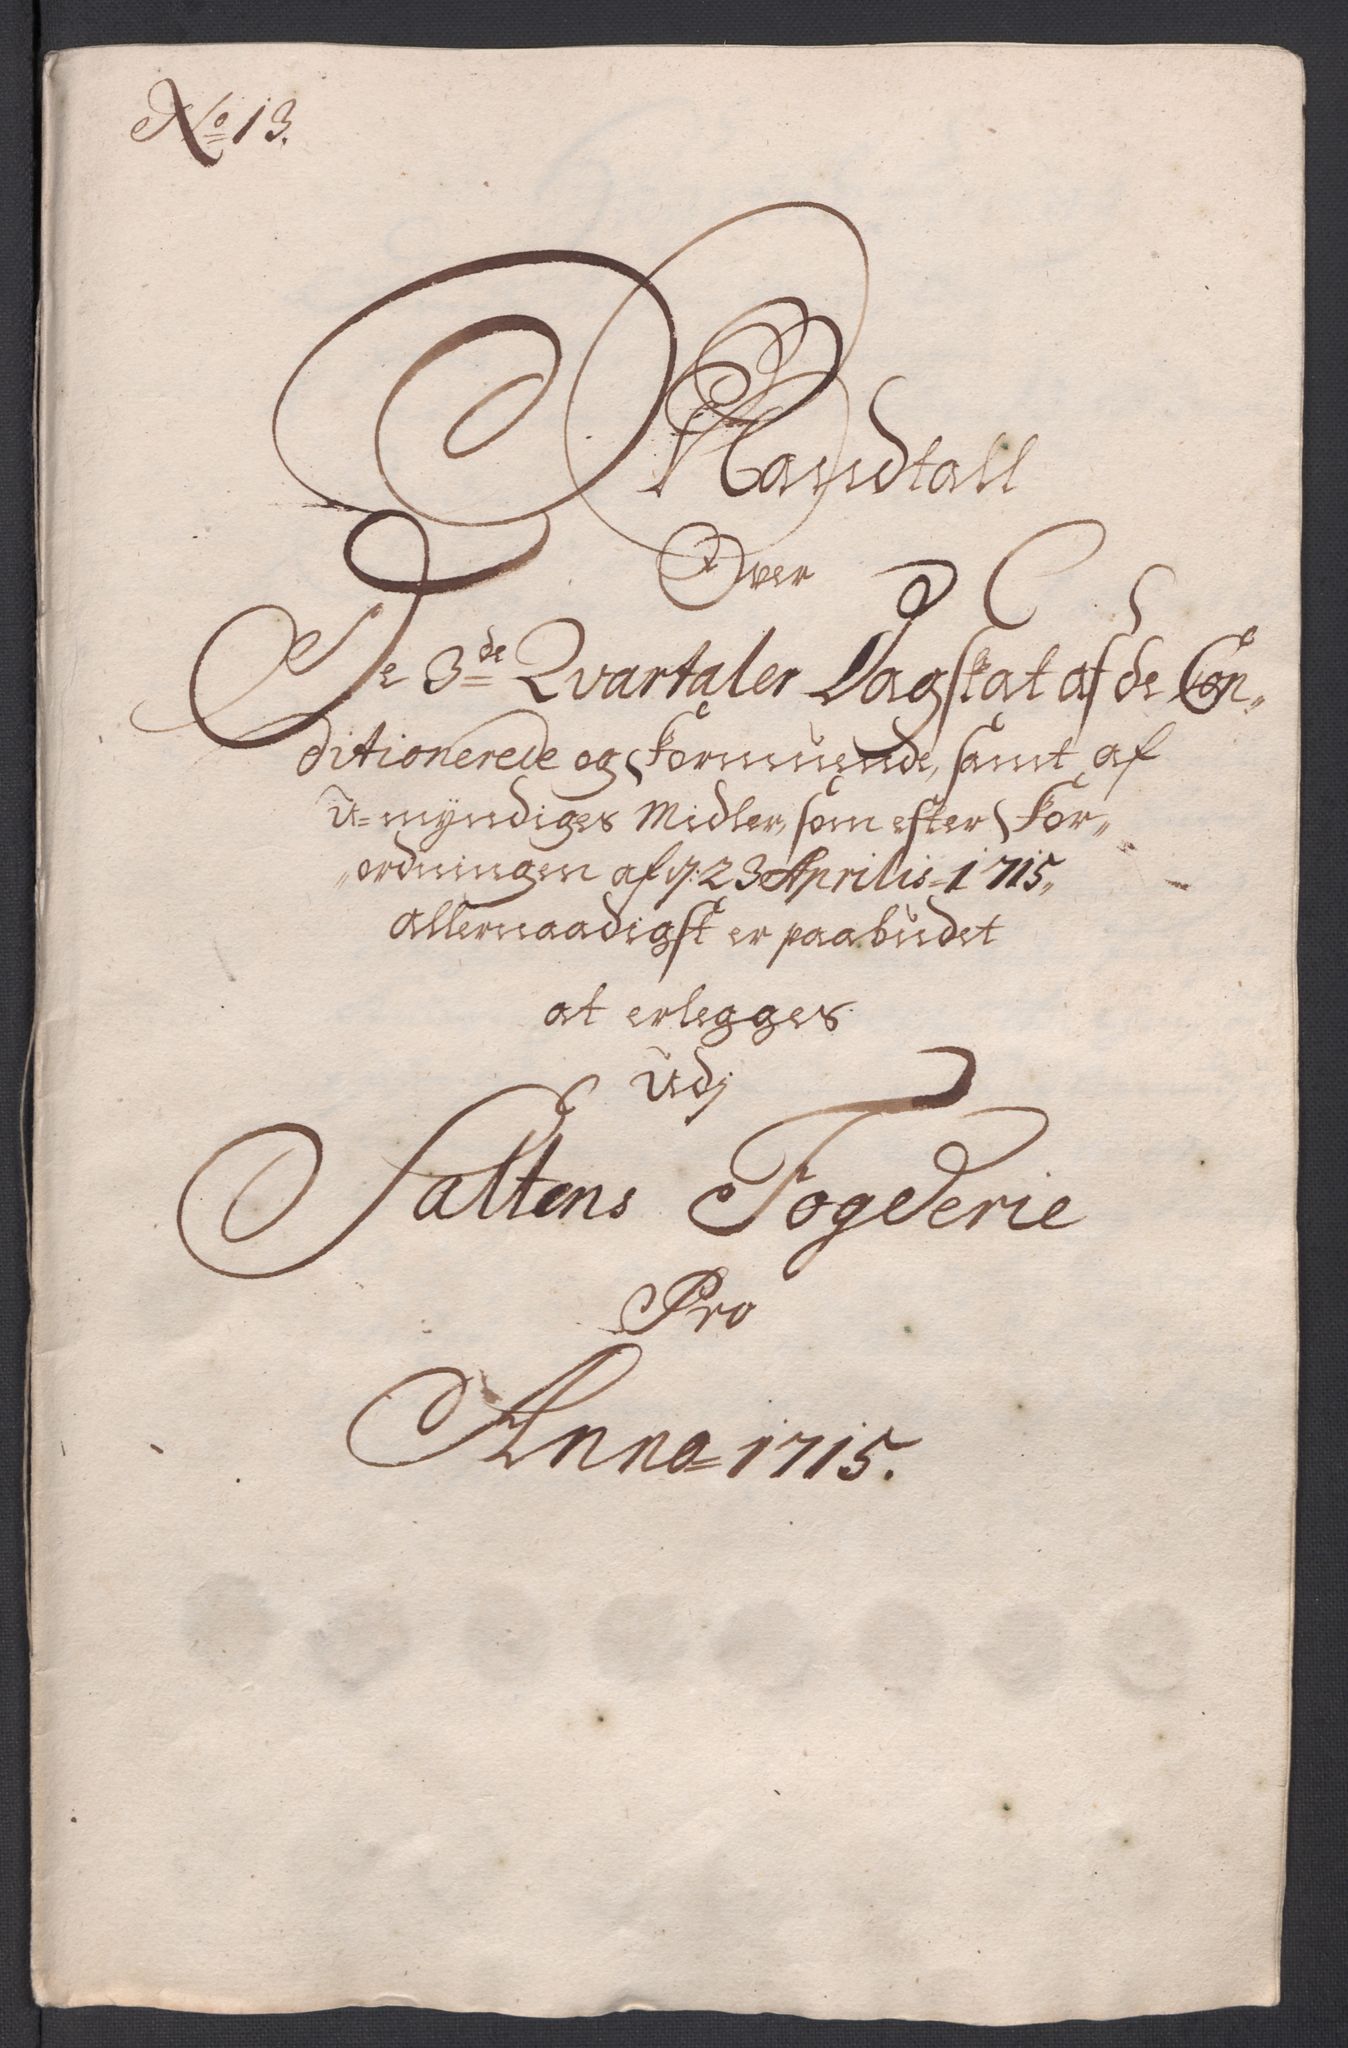 No 13.
Mandtall
Over
De 3de Qvartaler Dagskat af de Con„
ditionerede og Formuende, samt af
U=myndiges Midler, som efter For„
„ordningen af d: 23 Aprilis=1715„
allernaadigst er paabudet
at erlegges
Udj
Saltens Fogderie
Pro
Anno=1715.